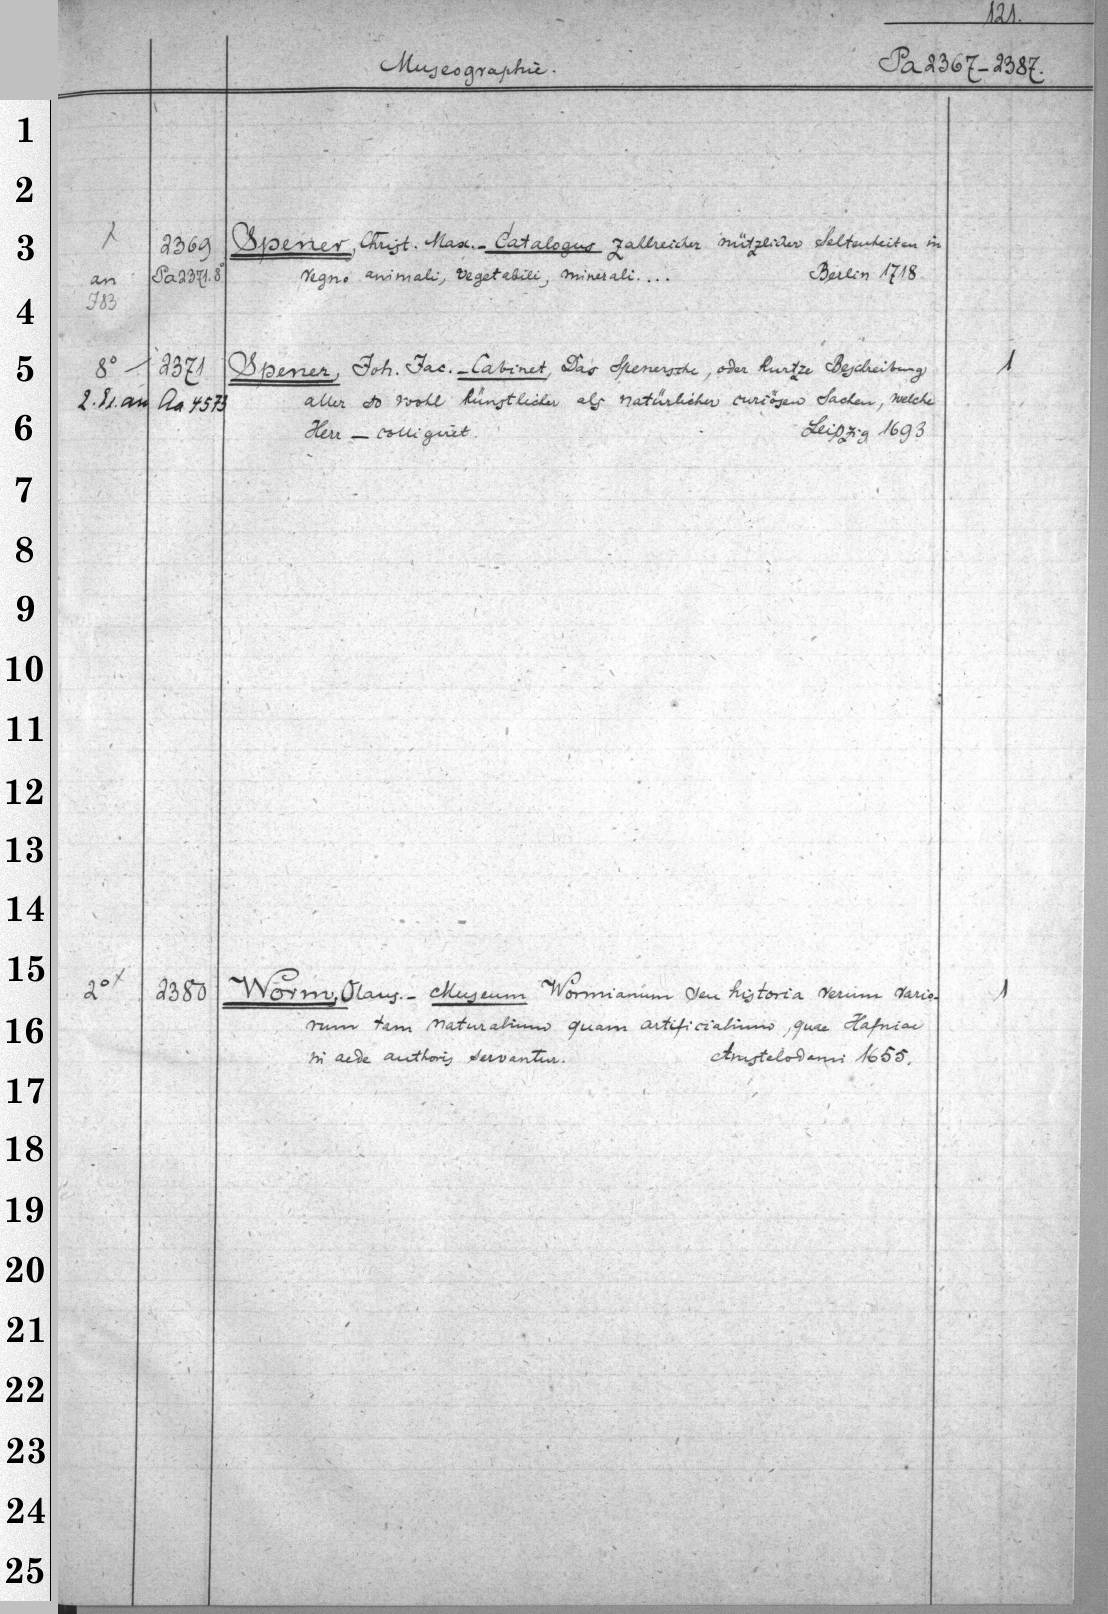 121.
Museographie.
Pa 2367-2387.
1
2
3
2369 Spener, Christ. Max. - Catalogus zallreicher nützlicher Seltenheiten in
an Pa 2371.8° regno animali, vegetabili, minerali.... Berlin 1718
4
5
8° 2371 Spener, Joh. Jac. - Cabinet, Das Spenersche, oder kurtze Beschreibung 1
2. Ex. an Aa 4573 aller so wohl künstlicher als natürlicher curiösen Sachen, welche
6
Herr — colligiret. Leipzig 1693
7
8
9
10
11
12
13
14
15
2° x 2380 Worm, Olaus. - Museum Wormianum seu historia rerum vario- 1
16
rum tam naturalium quam artificialium, quae Hafniae
in aede authoris servantur. Amstelodami 1655.
17
18
19
20
21
22
23
24
25